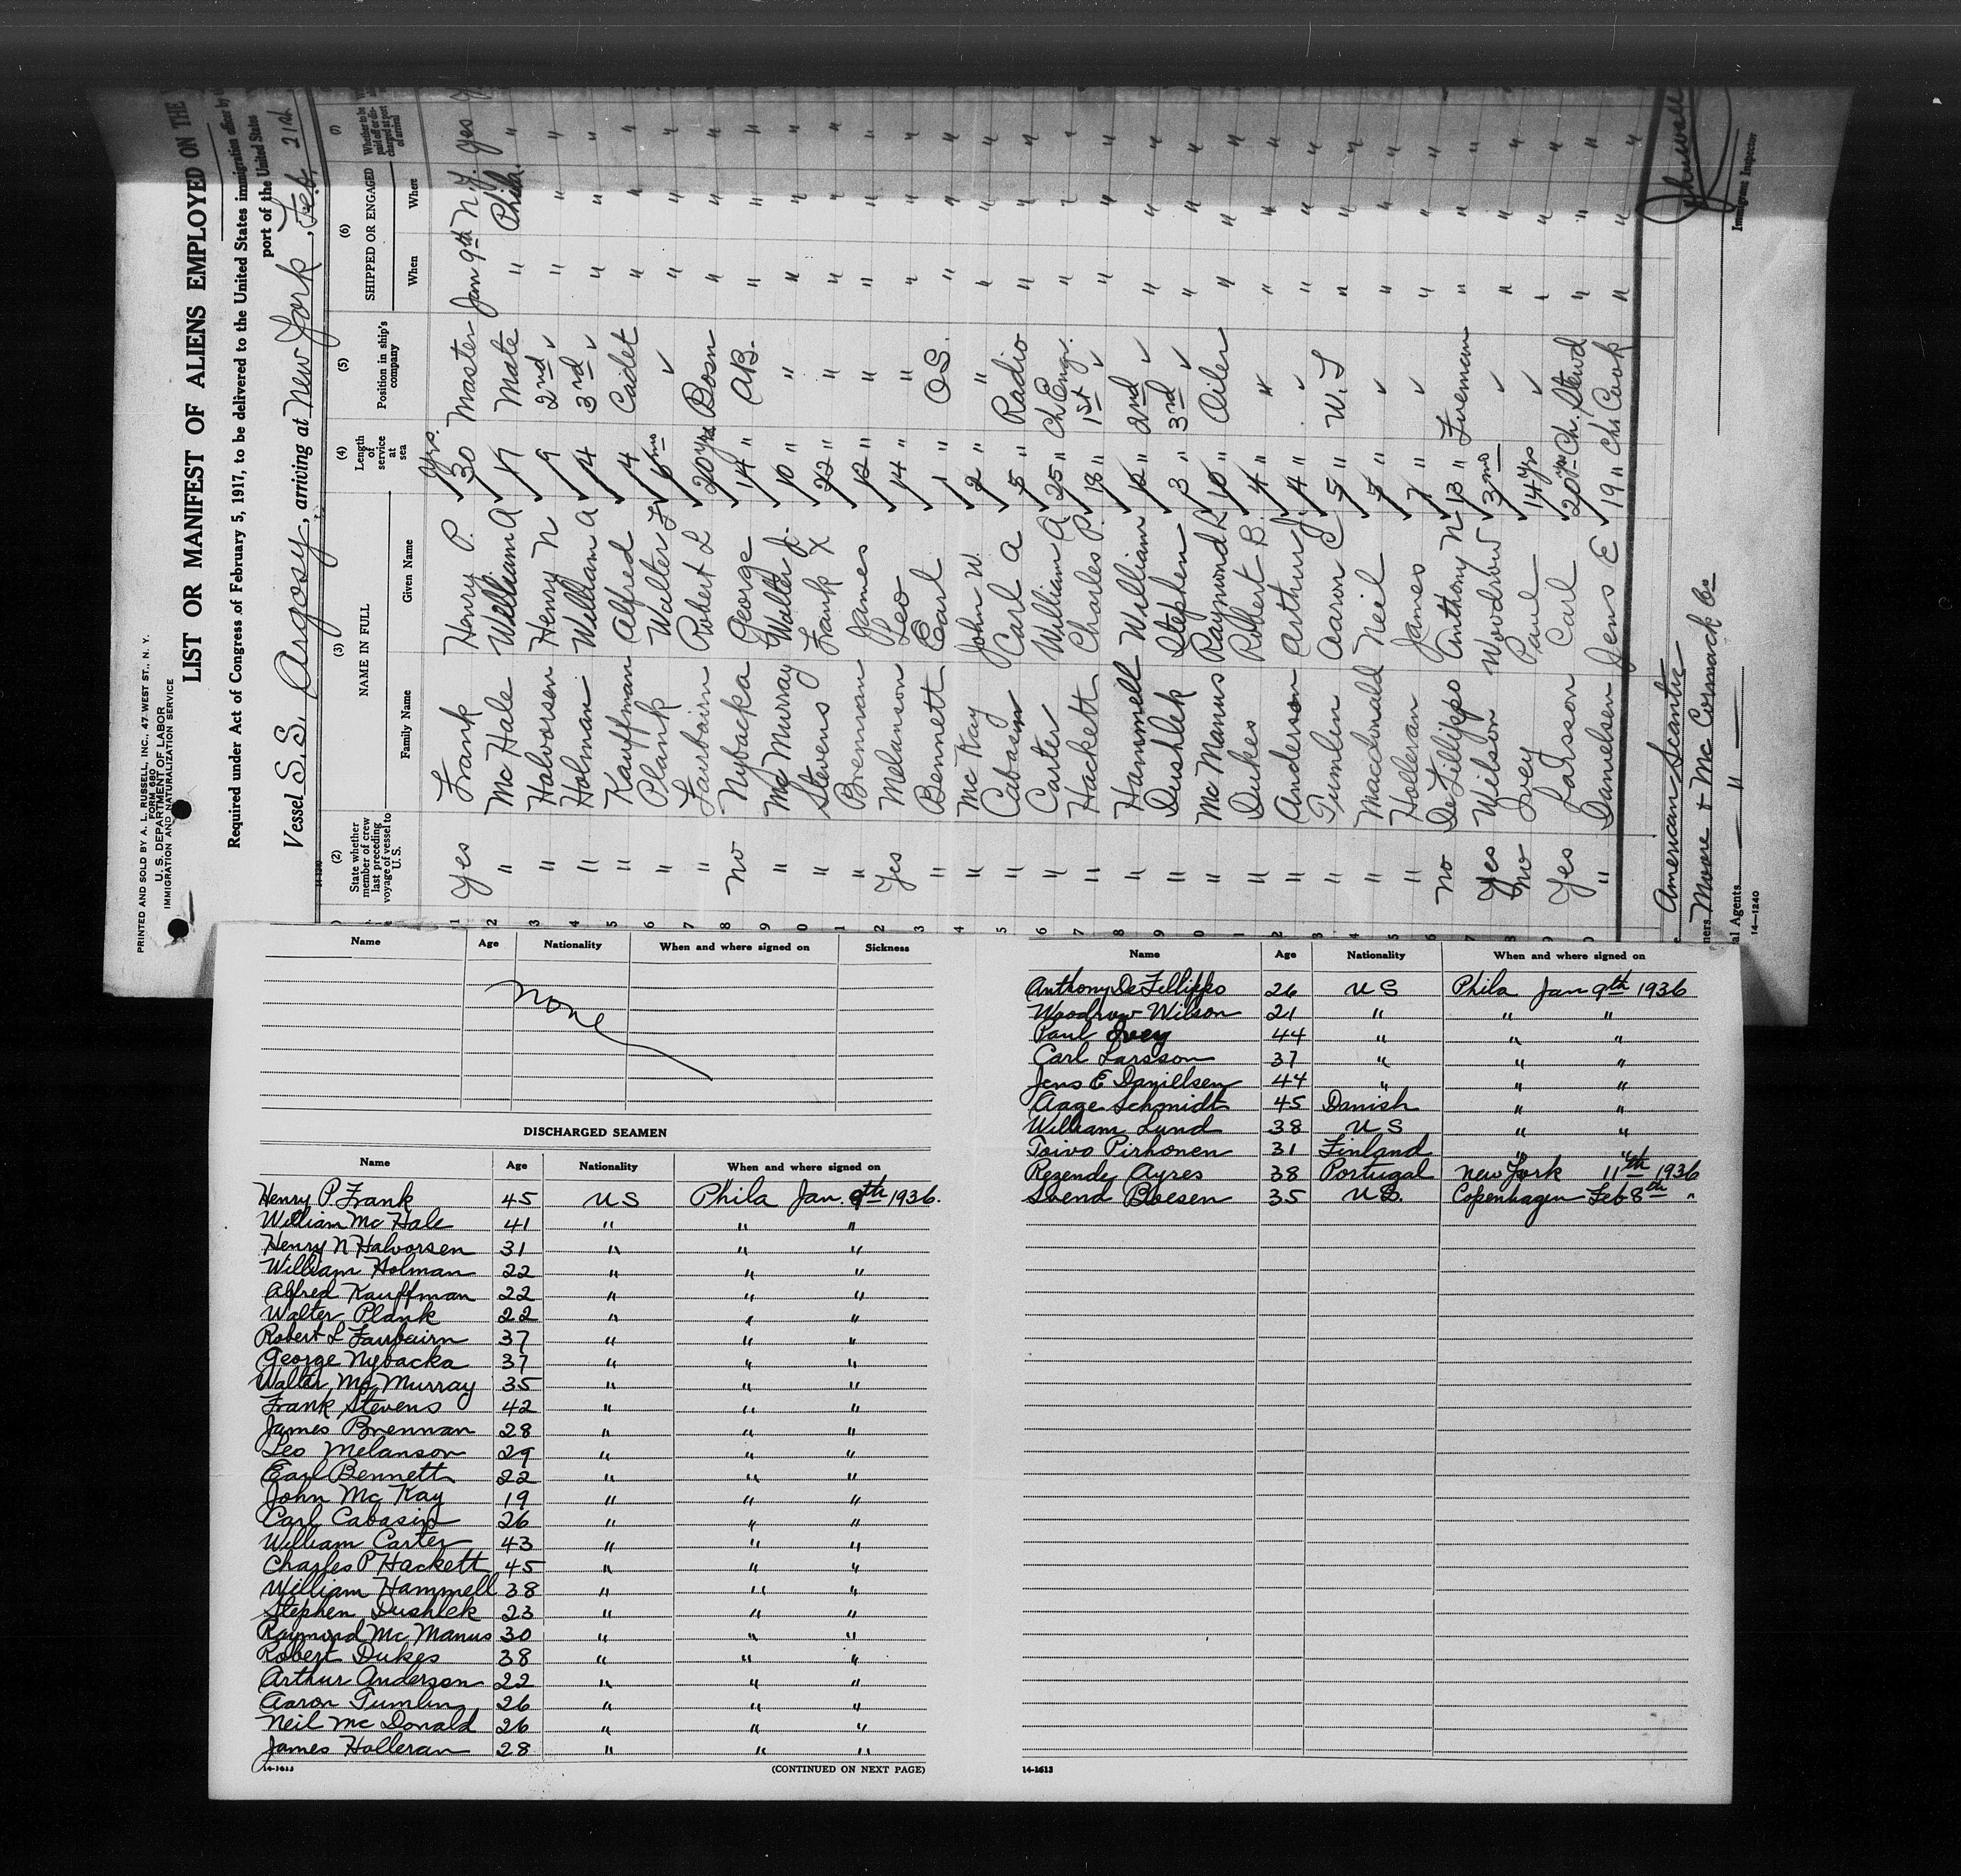 PRINTED AND SOLD BY A. L. RUSSELL, INC., 47 WEST ST., N. Y.
FORM 680
U. S. DEPARTMENT OF LABOR
IMMIGRATION AND NATURALIZATION SERVICE
LIST OR MANIFEST OF ALIENS EMPLOYED ON THE
Required under Act of Congress of February 5, 1917, to be delivered to the United States immigration officer by
port of the United States
Vessel S.S. Argosy, arriving at New York, Feb. 21st
(2) (3) (4) (5) (6) (7)
State whether member of crew last preceding voyage of vessel to U.S. NAME IN FULL Length of service at sea Position in ship's company SHIPPED OR ENGAGED Whether to be paid off or discharged at port of arrival
Family Name Given Name When Where
yrs.
1 Yes Frank Henry P. 30 Master Jan 9th N.J. Yes
2 " Mc Hale William A 17 Mate " Phila. "
3 " Halvorsen Henry N 9 2nd ✓ " " "
4 " Holman William A 4 3rd ✓ " " "
5 " Kauffman Alfred 4 Cadet " " "
6 " Plank Walter F 6 mo ✓ " " "
7 " Fairbairn Robert L 20 yrs Bosn " " "
8 No Nybacka George 14 " A.B. " " "
9 " Mc Murray Walter J. 10 " " " " "
0 " Stevens Frank X 22 " " " " "
1 " Brennan James 12 " " " " "
2 Yes Melanson Leo 14 " " " " "
3 " Bennett Earl 1 " O.S. " " "
4 " Mc Kay John W. 2 " " " " "
5 " Cabasin Carl A 5 " Radio " " "
6 " Carter William A 25 " Ch Engr. " " "
7 " Hackett Charles P. 18 " 1st ✓ " " "
8 " Hammell William 12 " 2nd ✓ " " "
9 " Dushlek Stephen 3 " 3rd ✓ " " "
0 " Mc Manus Raymond R 10 " Oiler " " "
1 " Dukes Robert B. 4 " " " " "
2 " Anderson Arthur J. 4 " ✓ " " "
3 " Tumlin Aaron C 5 " W.T " " "
4 " Macdonald Neil 5 " ✓ " " "
5 " Holleran James 7 " ✓ " " "
6 No De Fillippo Anthony N 13 " Fireman " " "
7 Yes Wilson Woodrow 3 mo ✓ " " "
8 No Ivey Paul 14 yrs ✓ " " "
9 Yes Larsson Carl 20 yrs Ch. Stewd " " "
0 " Danielsen Jens E 19 " Chf Cook " " "
American Scantic
ners Moore & Mc Cormack Co
al Agents "
14—1240
Immigrant Inspector
Name Age Nationality When and where signed on Sickness
None
DISCHARGED SEAMEN
Name Age Nationality When and where signed on
Henry P. Frank 45 U S Phila Jan. 9th 1936.
William Mc Hale 41 " " "
Henry N Halvorsen 31 " " "
William Holman 22 " " "
Alfred Kauffman 22 " " "
Walter Plank 22 " " "
Robert L Fairbairn 37 " " "
George Nybacka 37 " " "
Walter Mc Murray 35 " " "
Frank Stevens 42 " " "
James Brennan 28 " " "
Leo Melanson 29 " " "
Earl Bennett 22 " " "
John Mc Kay 19 " " "
Carl Cabasin 26 " " "
William Carter 43 " " "
Charles P Hackett 45 " " "
William Hammell 38 " " "
Stephen Dushlek 23 " " "
Raymond Mc Manus 30 " " "
Robert Dukes 38 " " "
Arthur Anderson 22 " " "
Aaron Tumlin 26 " " "
Neil Mc Donald 26 " " "
James Holleran 28 " " "
14-1613 (CONTINUED ON NEXT PAGE)
Name Age Nationality When and where signed on
Anthony De Fillippo 26 U S Phila Jan 9th 1936
Woodrow Wilson 21 " " "
Paul Ivey 44 " " "
Carl Larsson 37 " " "
Jens E Daniellsen 44 " " "
Aage Schmidt 45 Danish " "
William Lund 38 U S " "
Toivo Pirhonen 31 Finland " "
Rezende Ayres 38 Portugal New York 11th 1936
Svend Boesen 35 U.S. Copenhagen Feb 8th "
14-1613